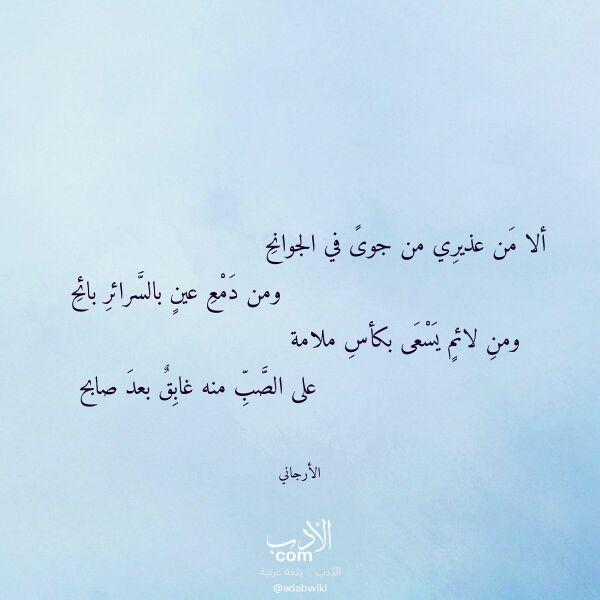 ألا مَن عذيرِي من جوىً في الجوانحِ
ومن دَمْعِ عينٍ بالسَّرائرِ بائحِ
ومنِ لائمٍ يَسْعَى بكأسِ ملامة
على الصَّبِّ منه غابِقٌ بعدَ صابح
الأرجاني
الأدب
com
الأدب .. بلغة عربية
@adabwiki